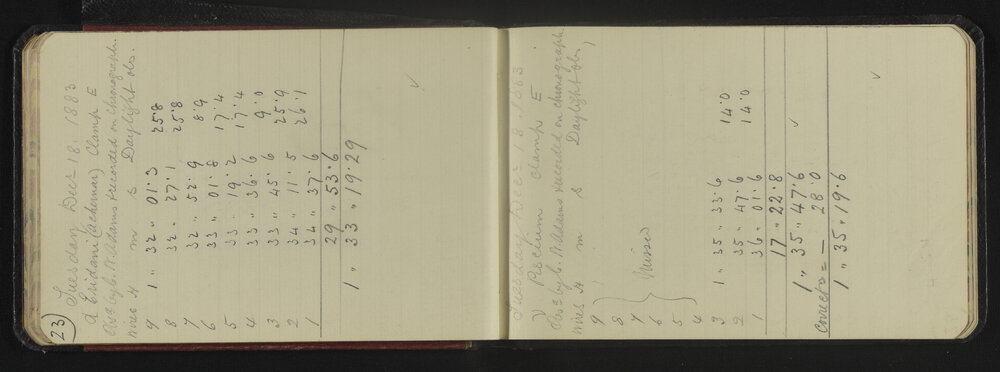 23
Tuesday Decr 18. 1883
α Eridani (achernar) Clamp E
Obsn by C. Adams recorded on chronograph.
wires H m s Daylight obs.
9 1 " 32 " 01.3 25.8
8 32 " 27.1 25.8
7 32 " 52.9 8.9
6 33 " 01.8 17.4
5 33 " 19.2 17.4
4 33 " 36.6 9.0
3 33 " 45.6 25.9
2 34 " 11.5 26.1
1 34 " 37.6
29 " 53.6
1 " 33 " 19.29
✓
Tuesday Decr 18. 1883
ν Piscium clamp E
Obsn by C. Adams recorded on chronograph
wires H m s Daylight obs,
9
8
7 Missed
6
5
4
3 1 " 35 " 33.6 14.0
2 35 " 47.6 14.0
1 36 " 01.6
17 " 22.8
1 " 35 " 47.6 ✓
Correctn = — 28.0
1 " 35 " 19.6
✓